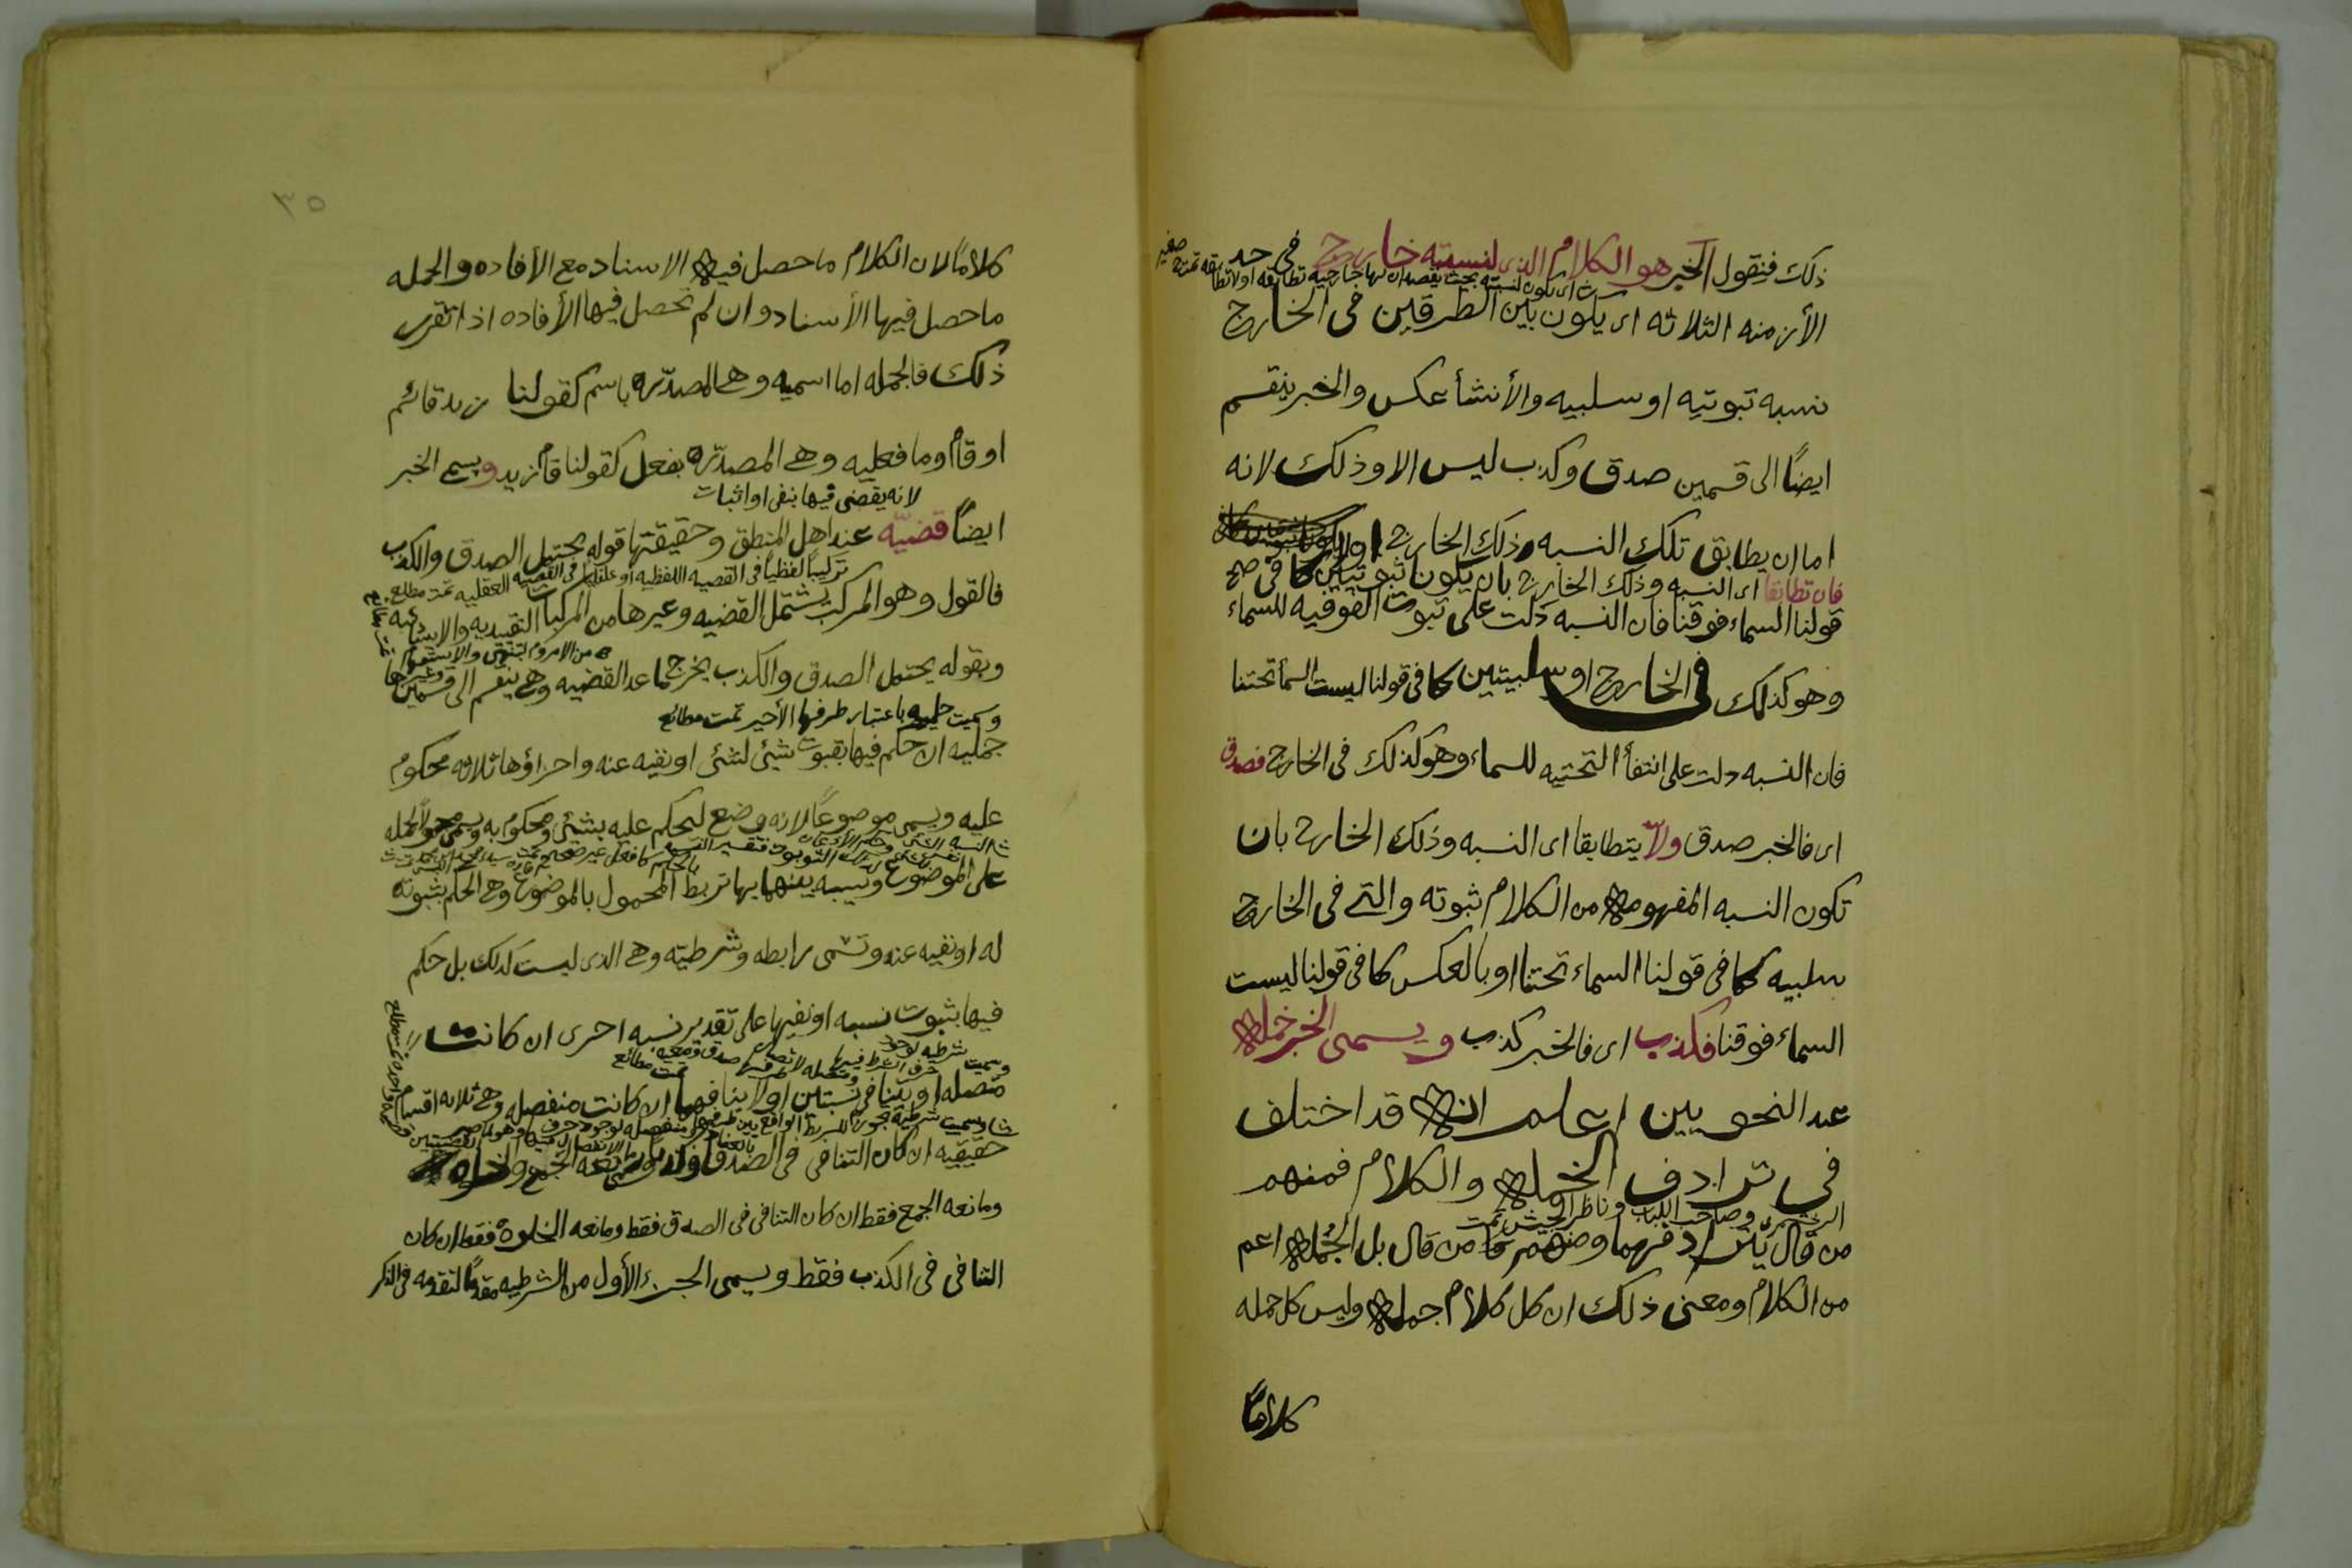 ذلك فنقول الخبر هو الكلام الذى لنسبته خارج فى حد
الأزمنه الثلاثه اى يكون بين الطرفين فى الخارج
نسبه ثبوتيه او سلبيه والأنشأ عكس والخبر ينقسم
ايضًا الى قسمين صدق وكذب ليس الا وذلك لانه
اما ان يطابق تلك النسبه وذلك الخارج او لا
فان تطابقا اى النسبه وذلك الخارج بان يكونا ثبوتيتين كما فى
قولنا السماء فوقنا فان النسبه دلت على ثبوت الفوقيه للسماء
وهو كذلك فى الخارج او سلبيتين كما فى قولنا ليست السمأ تحتنا
فان النسبه دلت على انتفأ التحتيه للسماء وهو كذلك فى الخارج فصدق
اى فالخبر صدق ولا يتطابقا اى النسبه وذلك الخارج بان
تكون النسبه المفهومه من الكلام ثبوته والتى فى الخارج
سلبيه كما فى قولنا السماء تحتنا او بالعكس كما فى قولنا ليست
السماء فوقنا فكذب اى فالخبر كذب ويسمى الخبر جمله
عند النحويين اعلم انه قد اختلف
فى ترادف الجمله والكلام فمنهم
وصاحب اللباب وناظر الجيش تمت
من قال بترادفهما ومنهم من قال بل الجمله اعم
من الكلام ومعنى ذلك ان كل كلام جمله وليس كل جمله
كلامًا
٣٥
كلامًا لان الكلام ما حصل فيه الاسناد مع الأفاده والجمله
ما حصل فيها الأسناد وان لم تحصل فيها الأفاده اذا تقرر
ذلك فالجمله اما اسميه وهى المصدّره باسم كقولنا زيد قائم
او قام او ما فعليه وهى المصدّره بفعل كقولنا قام زيد ويسمى الخبر
لانه يقضى فيها بنفى او اثبات
ايضًا قضيّه عند اهل المنطق وحقيقتها قوله يحتمل الصدق والكذب
تركيبًا لفظيًا فى القضيه اللفظيه او عقليا فى القضيه العقليه تمت مطلع
فالقول وهو المركب يشتمل القضيه وغيرها من المركبات التقييديه والانشائيه
من الامر والنهى والاستفهام وغيرها
وبقوله يحتمل الصدق والكذب يخرج ما عدا القضيه وهى ينقسم الى قسمين
وسميت حمليه باعتبار طرفها الأخير تمت مطالع
حمليه ان حكم فيها بثبوت شيئ لشئ او نفيه عنه واجزاؤها ثلاثه محكوم
عليه ويسمى موضوعًا لانه وضع ليحكم عليه بشئ ومحكوم به ويسمى محمولًا لحمله
على الموضوع ونسبه بينهما بها تربط المحمول بالموضوع وهى الحكم بثبوته
له او نفيه عنه وتسمى رابطه وشرطيته وهى الذى ليست كذلك بل حكم
فيها بثبوت نسبه او نفيها على تقدير نسبه اخرى ان كانت
متصله او بتنافى نسبتين او لا بتنافيهما ان كانت منفصله وهى ثلاثه اقسام
حقيقيه ان كان التنافى فى الصدق
ومانعه الجمع فقط ان كان التنافى فى الصدق فقط ومانعه الخلوه فقط ان كان
التنافى فى الكذب فقط ويسمى الجزء الأول من الشرطيه مقدمًا لتقدمه فى الذكر